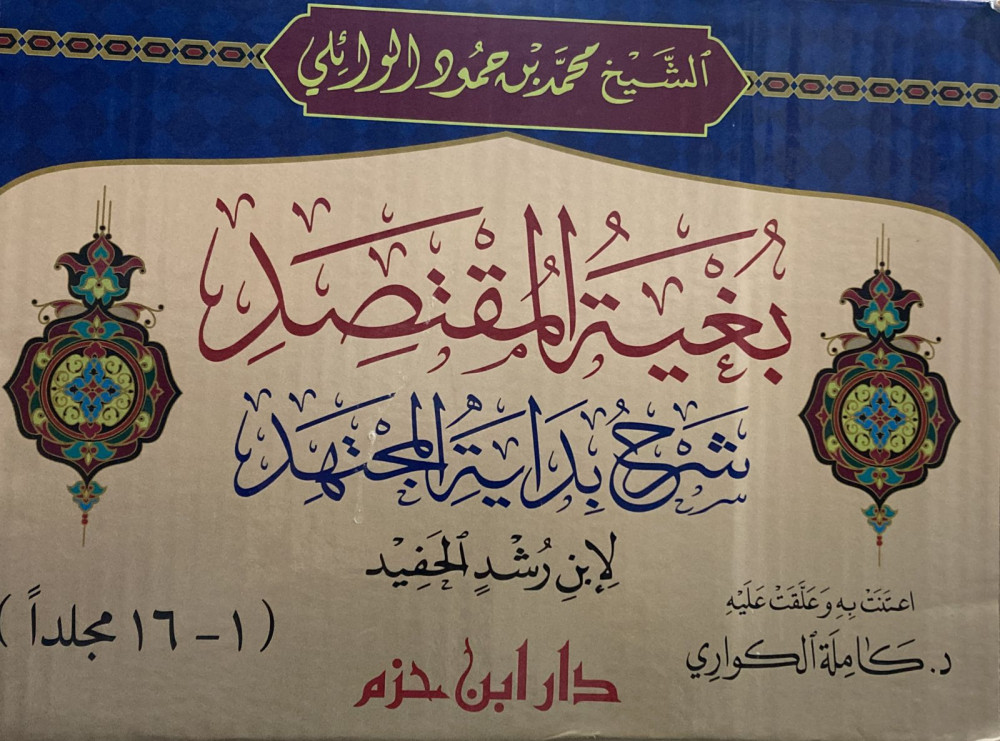 الشَّيْخ مُحَمَّد بْن حَمُود الوَائِلي
بُغْيَةُ المُقْتَصِدِ
شَرْحُ بِدَايَةِ المُجْتَهِدِ
لِابْنِ رُشْدٍ الحَفِيْد
اعتَنَتْ بِهِ وَعَلَّقَتْ عَلَيْهِ
د. كَامِلَة الكواري
(١ - ١٦ مجلداً)
دار ابن حزم